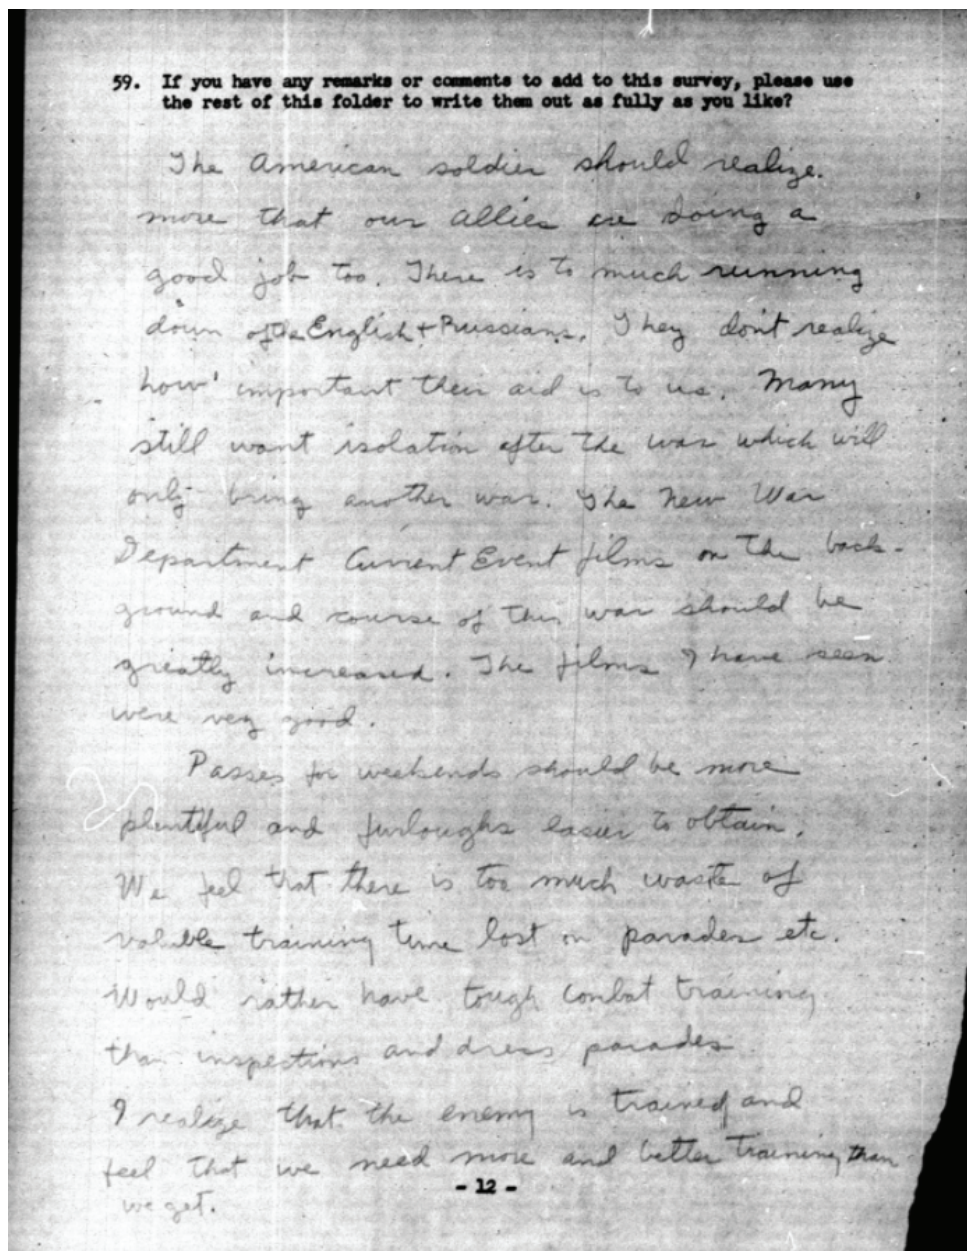 59. If you have any remarks or comments to add to this survey, please use
the rest of this folder to write them out as fully as you like?
The American soldier should realize.
more that our allies are doing a
good job too. There is to much running
down of the English + Russians. They don't realize
how important their aid is to us. Many
still want isolation after the war which will
only bring another war. The New War
Department Current Event films on the back-
ground and course of this war should be
greatly increased. The films I have seen
were very good.
Passes for weekends should be more
plentiful and furloughs easier to obtain.
We feel that there is too much waste of
valuble training time lost on parades etc.
Would rather have tough combat training
than inspections and dress parades
I realize that the enemy is trained and
feel that we need more and better training than
we get.
- 12 -